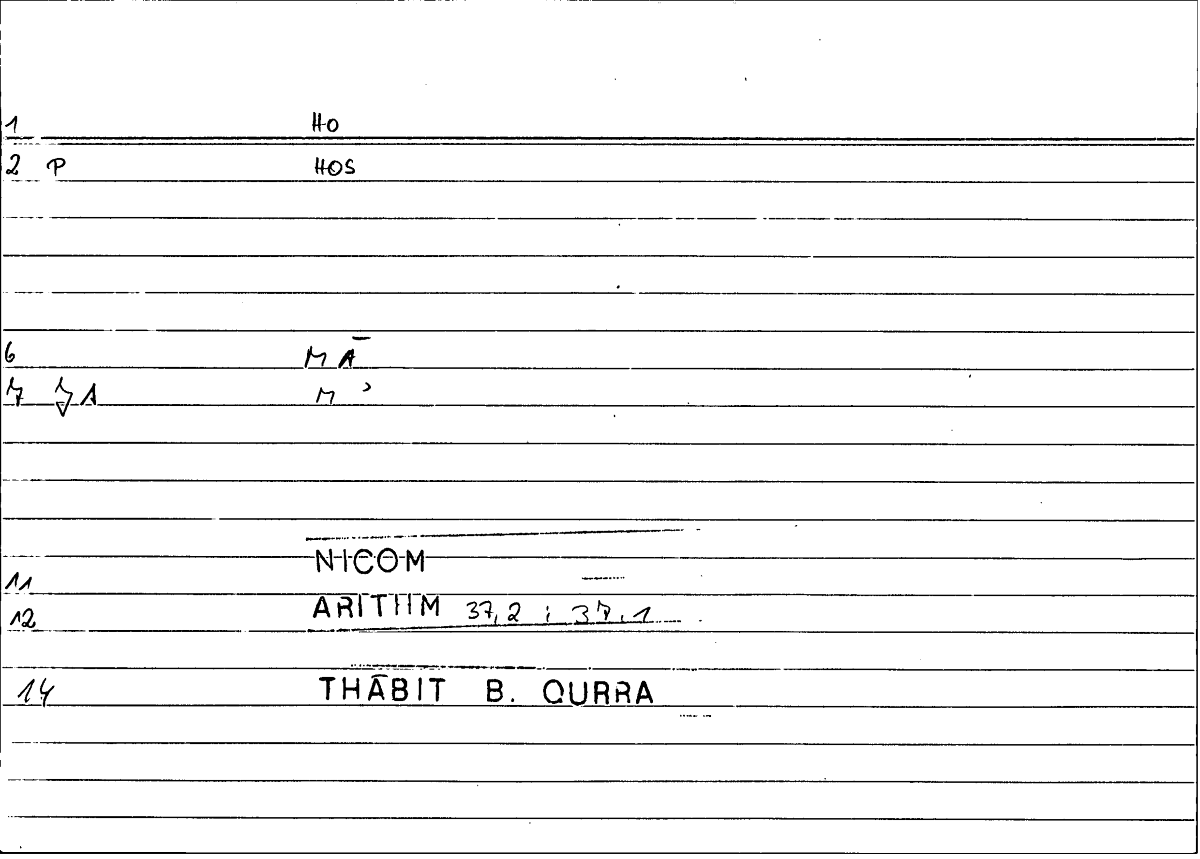 1 HO
2 P HOS
6 M Ā
7 A M ʾ
11 NICOM
12 ARITHM 37,2 ; 37,1
14 THĀBIT B. QURRA